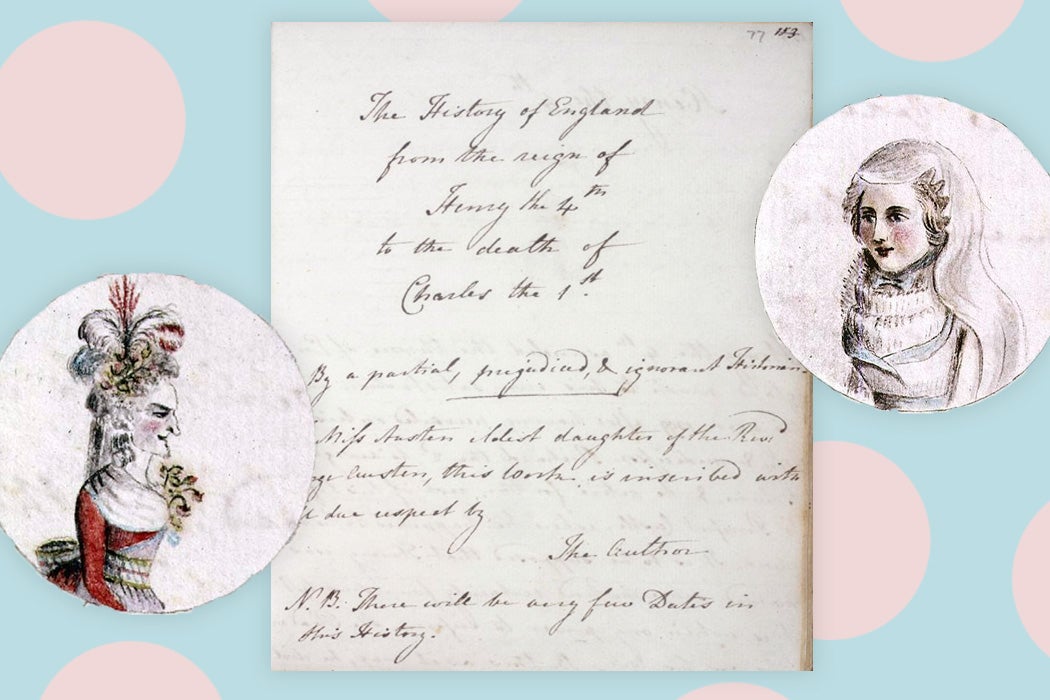 77 153
The History of England
from the reign of
Henry the 4th
to the death of
Charles the 1st.
By a partial, prejudiced, & ignorant Historian.
Miss Austen eldest daughter of the Revd
rge Austen, this Work is inscribed with
ll due respect by
The Author
N.B. There will be very few Dates in
this History.